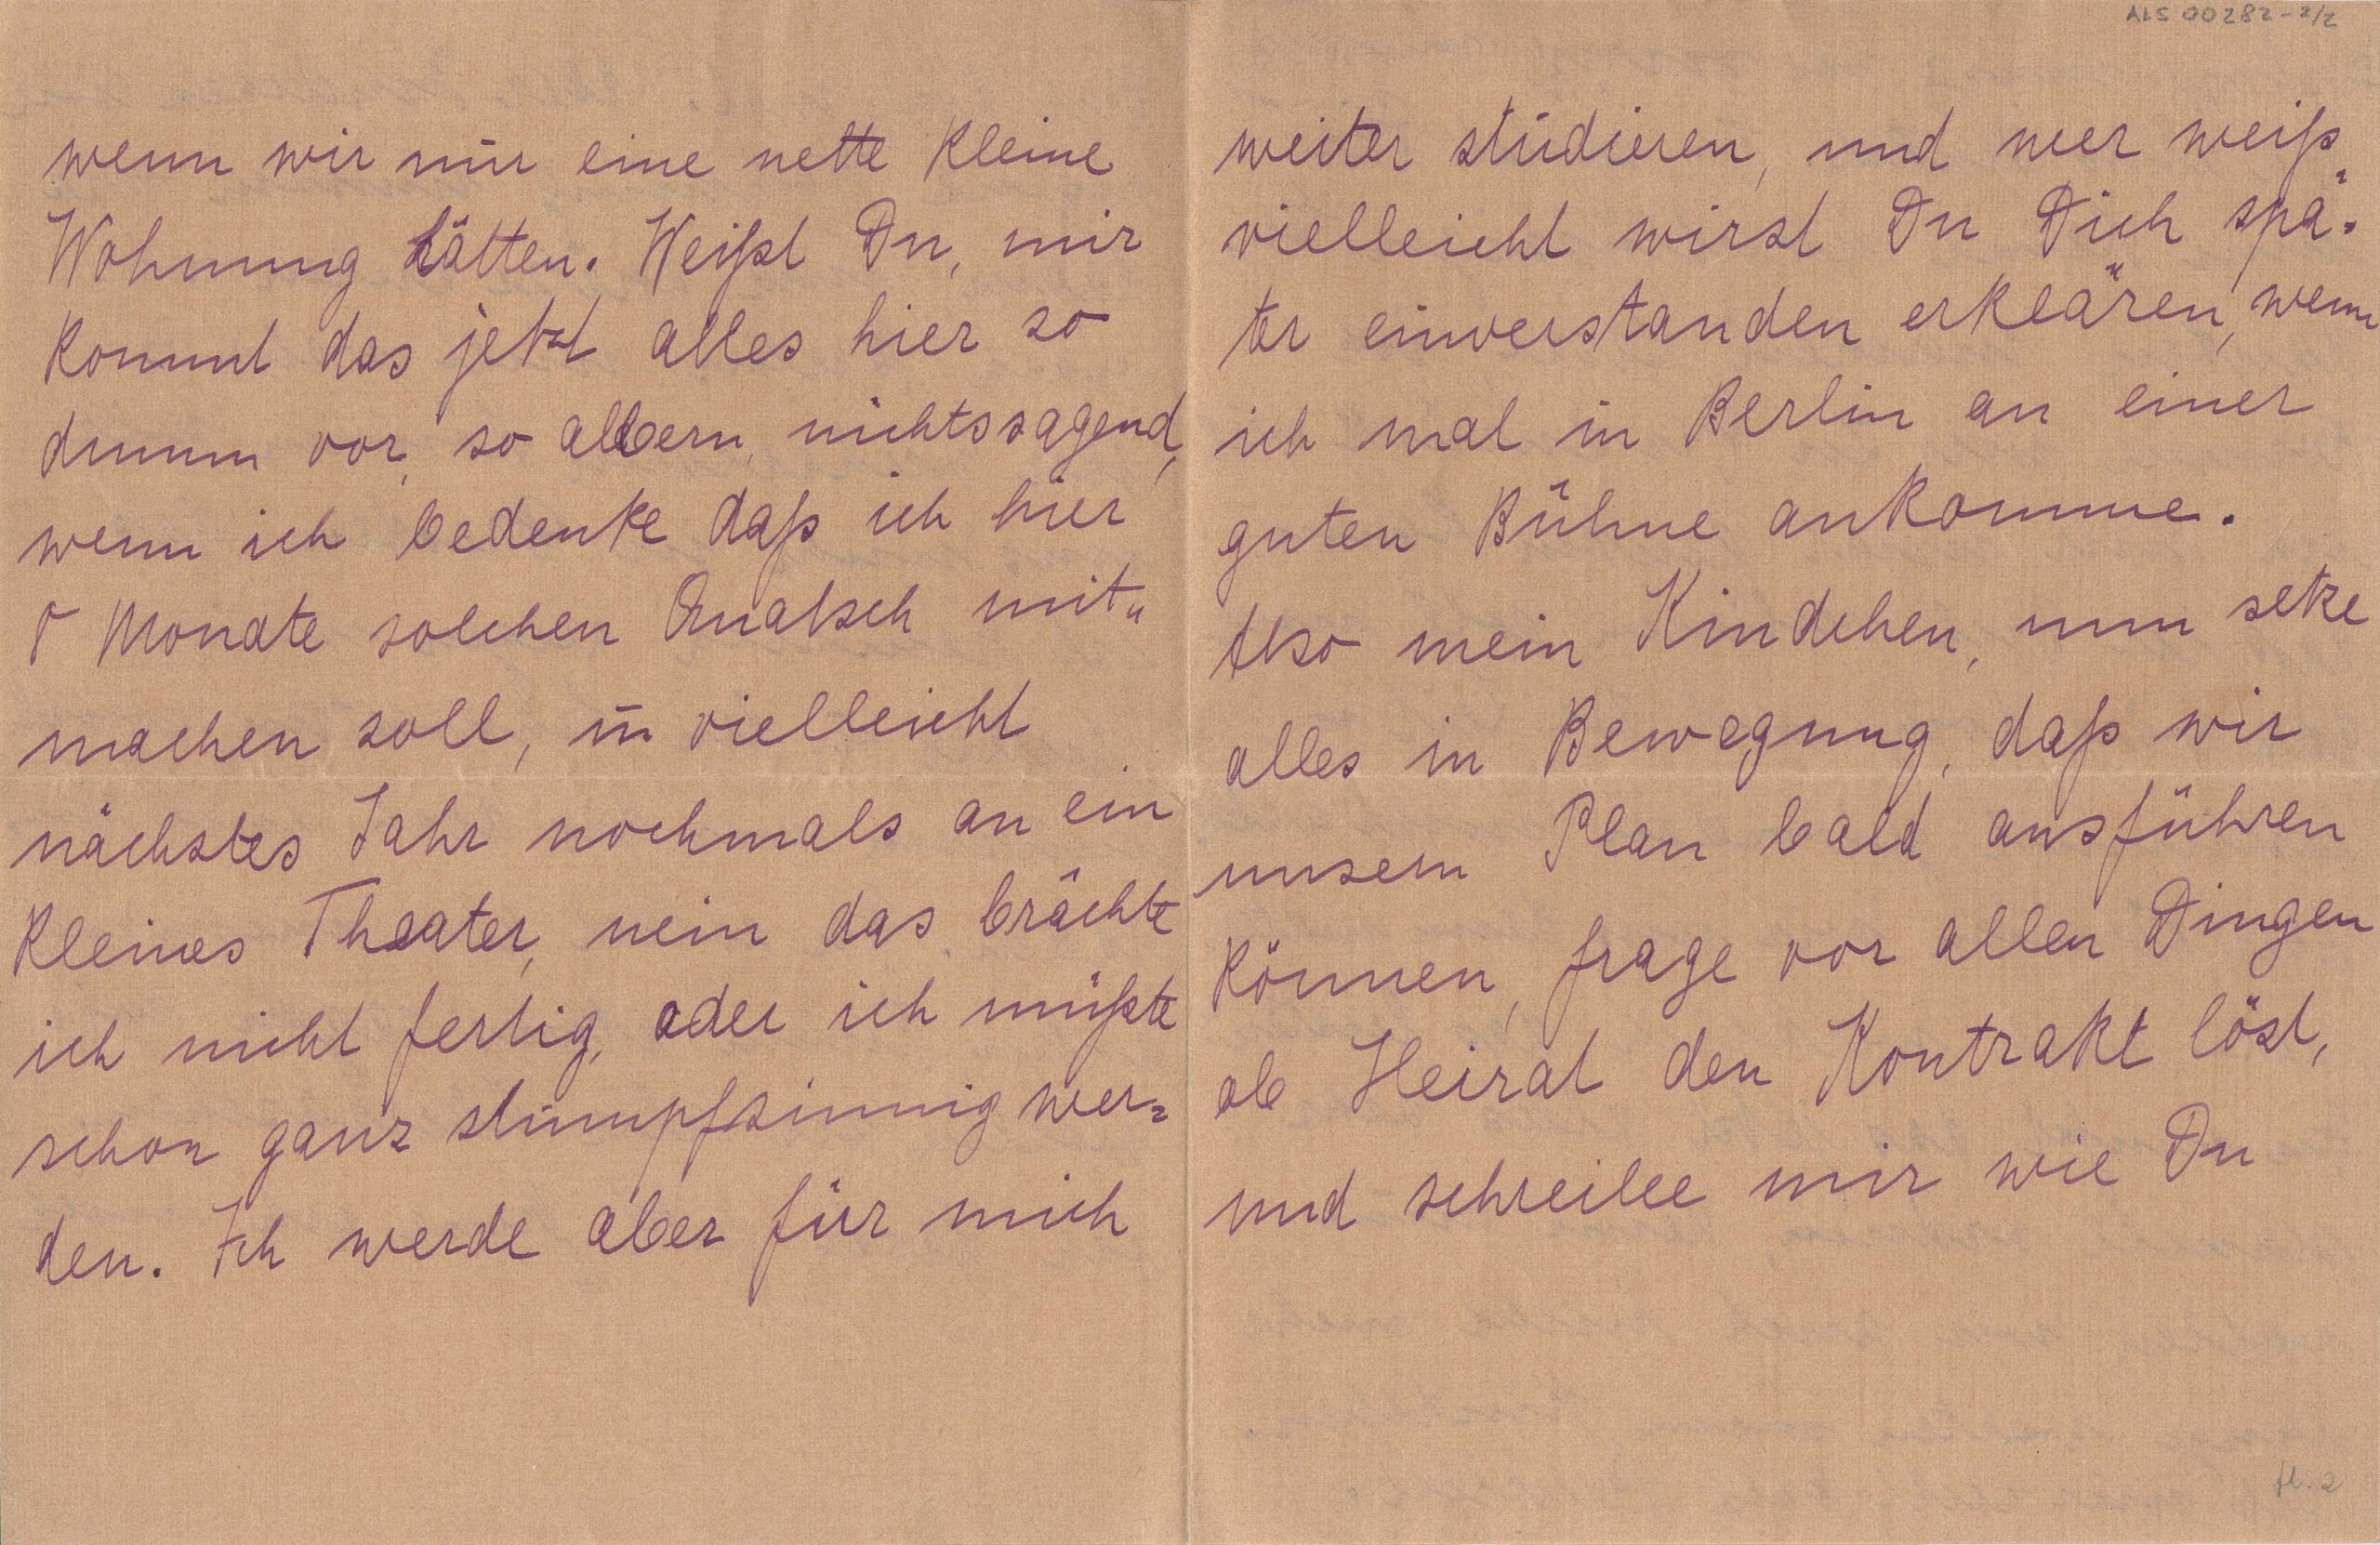 wenn wir nur eine nette kleine
Wohnung hätten. Weißt Du, mir
kommt das jetzt alles hier so
dumm vor, so albern, nichtssagend,
wenn ich bedenke daß ich hier
Monate solchen Quatsch mit„
machen soll, u vielleicht
nächstes Jahr nochmals an ein
kleines Theater, nein das brächte
ich nicht fertig, oder ich müßte
schon ganz stumpfsinnig wer=
den. Ich werde aber für mich
ALS 00282-2/2
weiter studieren, und wer weiß
vielleicht wirst Du Dich spä=
ter einverstanden erklären, wenn
ich mal in Berlin an einer
guten Bühne ankomme.
Also mein Kindchen, nun setze
alles in Bewegung, daß wir
unsern Plan bald ausführen
können, frage vor allen Dingen
ob Heirat den Kontrakt löst,
und schreibe mir wie Du
fl. 2